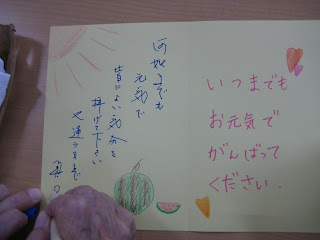 いつまでも
お元気で
がんばって
ください.
何歳までも
元気で
皆によい気分を
捧げて下さい